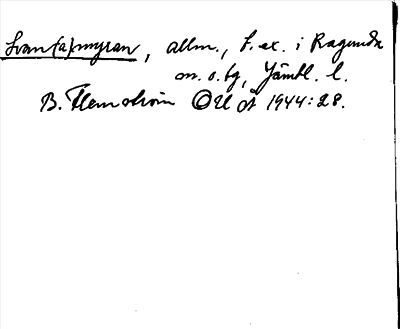 Svan(a)myran, allm., t. ex. i Ragunda
sn. o. tg, Jämtl. l.
B. Flemström ©U Å 1944:28.